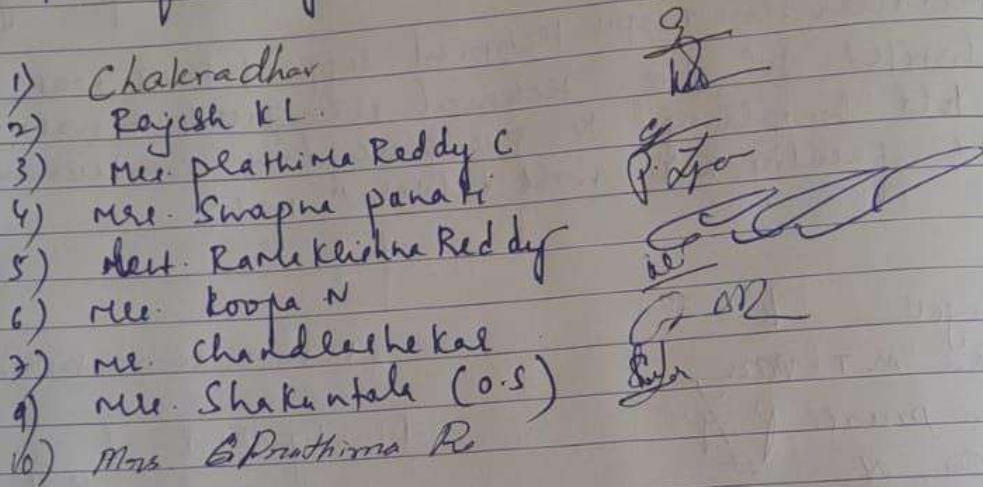 1) Chakradhar
2) Rajesh K L.
3) Mrs. Prathima Reddy C
4) Mrs. Swapna panati
5) Ramakrishna Reddy
6) Mrs. Roopa N
7) Mr. Chandrashekar
9) Mrs. Shakuntala (O.S)
10) Mrs Prathima R